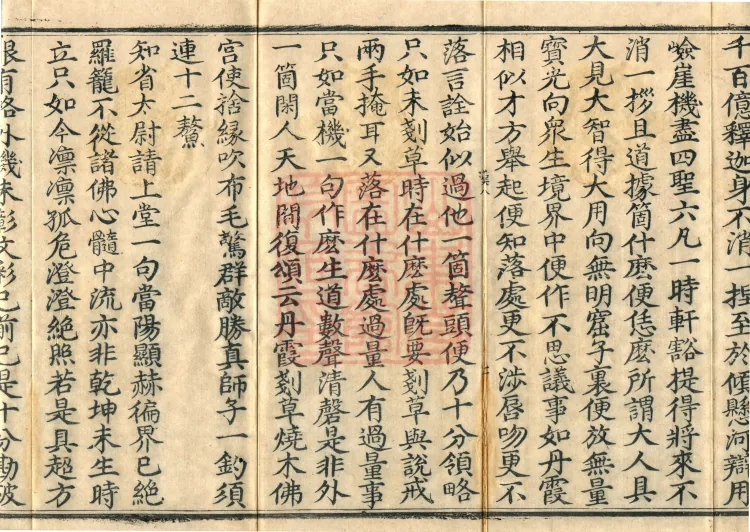 千百億釋迦身不消一揑至於傾懸河辯用
嶮崖機盡四聖六凡一時軒豁提得將來不
消一拶且道據箇什麽便恁麽所謂大人具
大見大智得大用向無明窟子裏便放無量
寶光向衆生境界中便作不思議事如丹霞
相似才方舉起便知落處更不涉唇吻更不
落言詮始似過他一箇聱頭便乃十分領略
只如未剗草時在什麽處旣要剗草與說戒
兩手掩耳又落在什麽處過量人有過量事
只如當機一句作麽生道數聲清磬是非外
一箇閑人天地間復頌云丹霞剗草燒木佛
宮使捨緣吹布毛驚群敵勝真師子一釣須
連十二鰲
知省太尉請上堂一句當陽顯赫徧界已絶
羅籠不從諸佛心髓中流亦非乾坤未生時
立只如今凛凛孤危澄澄絶照若是具超方
眼有格外機未彰文彩已前已是十分勘破